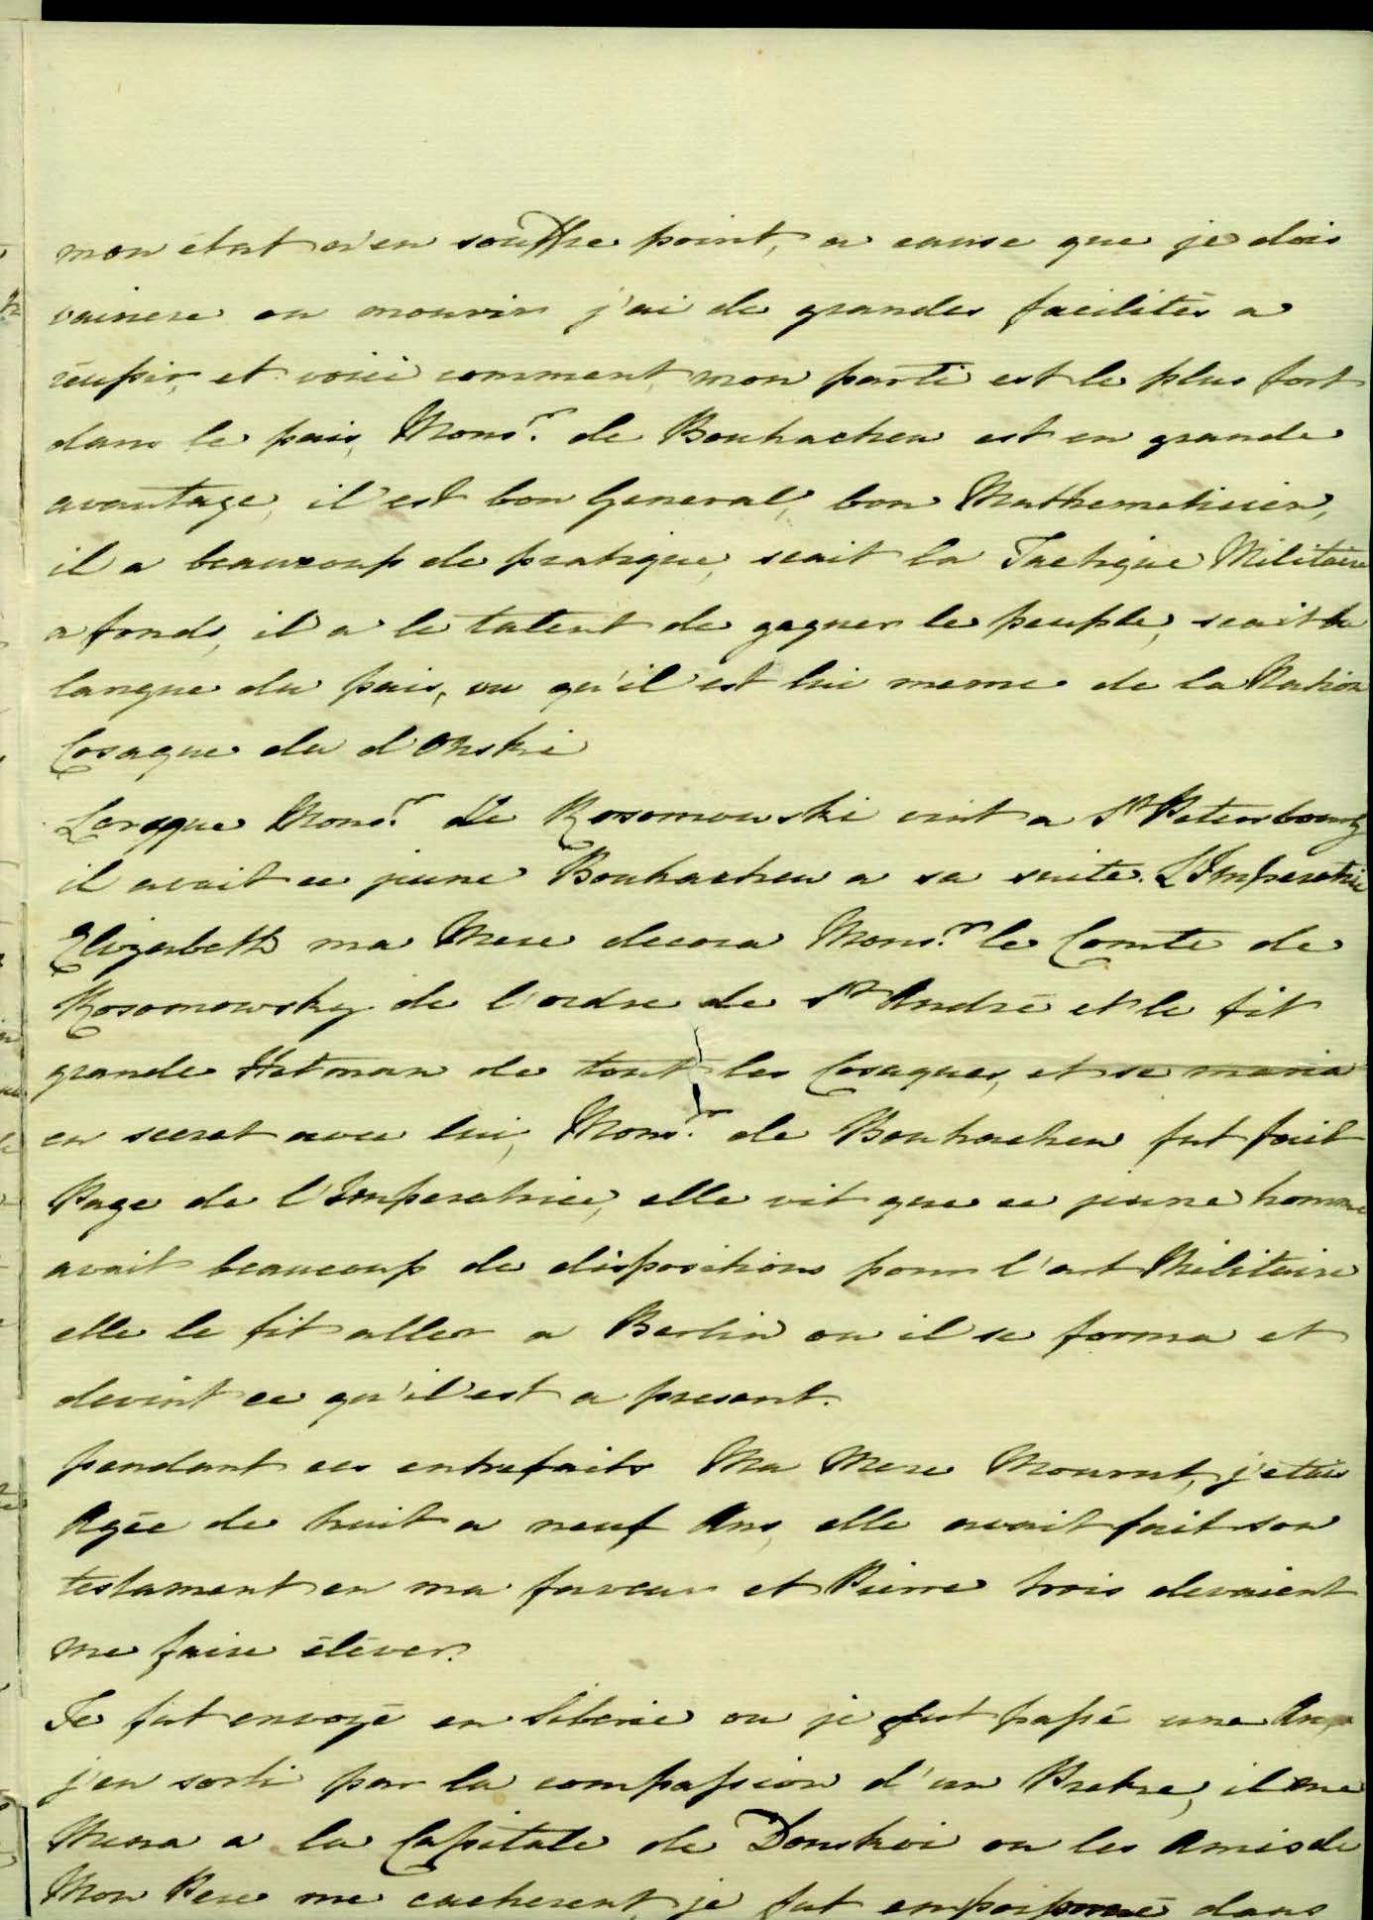 mon état n'en souffre point, a cause que je dois
vaincre ou mourir j'ai de grandes facilités a
réussir, et voici comment, mon parti est le plus fort
dans le pais, Monsr. de Bouhacheu est en grande
avantage, il est bon General, bon Mathematicien,
il a beaucoup de pratique, scait la Tactique Militaire
a fonds, il a le talent de gagner le peuple, scait la
langue du pais, vu qu'il est lui meme de la Nation
Cosaque du d'Onski
Lorsque Monsr. de Rosomowski vint a St Petersbourg
il avait ce jeune Bouhacheu a sa suite. L'Imperatrice
Elizabeth ma Mere decora Monsr. le Comte de
Rosomowsky de l'ordre de St André et le fit
grande Hetman de tout les Cosaques, et se maria
en secret avec lui, Monsr. de Bouhacheu fut fait
Page de l'Imperatrice, elle vit que ce jeune homme
avait beaucoup de dispositions pour l'art Militaire
elle le fit aller a Berlin ou il se forma et
devint ce qu'il est a present.
pendant ces entrefaits Ma Mere Mourut, j'etais
Agée de huit a neuf Ans, elle avait fait son
testament en ma faveur et Pierre trois devaient
me faire éléver.
Je fut envoyé en Siberie ou je fut passé une An,
j'en sorti par la compassion d'un Pretre, il me
Mena a la Capitale de Donskoi ou les Amis de
Mon Pere me cacherent, je fut empoisonné dans